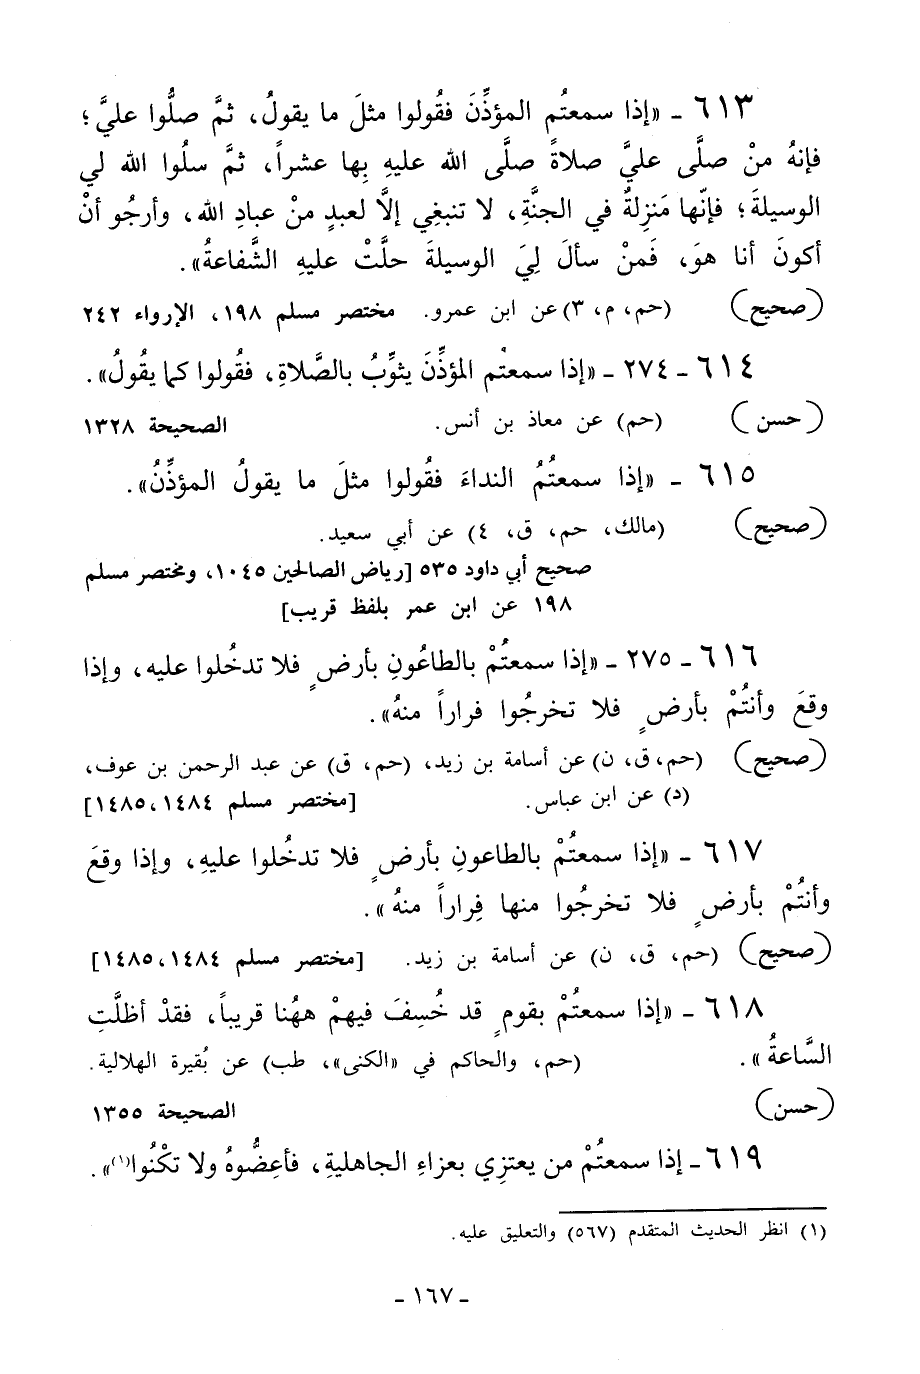 ٦١٣ ـ «إذا سمعتُم المؤذِّنَ فقُولوا مثلَ ما يقولُ، ثمَّ صلُّوا عليَّ؛
فإنهُ منْ صلَّى عليَّ صلاةً صلَّى الله عليهِ بِها عشراً، ثمَّ سلُوا الله لي
الوسيلةَ؛ فإنّها مَنزِلةٌ في الجنَّةِ، لا تنبغِي إلَّا لعبدٍ منْ عبادِ الله، وأرجُو أنْ
أكونَ أنا هوَ، فَمنْ سألَ لِيَ الوسيلةَ حلَّتْ عليهِ الشَّفاعةُ».
(صحيح) (حم، م، ٣) عن ابن عمرو. مختصر مسلم ١٩٨، الإرواء ٢٤٢
٦١٤ ـ ٢٧٤ ـ «إذا سمعتْم المؤذِّنَ يثوِّبُ بالصَّلاةِ، فقُولوا كما يقُولُ».
(حسن) (حم) عن معاذ بن أنس. الصحيحة ١٣٢٨
٦١٥ ـ «إذا سمعتُمُ النداءَ فقُولوا مثلَ ما يقولُ المؤذِّنُ».
(صحيح) (مالك، حم، ق، ٤) عن أبي سعيد.
صحيح أبي داود ٥٣٥ [رياض الصالحين ١٠٤٥، ومختصر مسلم
١٩٨ عن ابن عمر بلفظ قريب]
٦١٦ ـ ٢٧٥ ـ «إذا سمعتُمْ بالطاعُونِ بأرضٍ فلا تدخُلوا عليه، وإذا
وقعَ وأنتُمْ بأرضٍ فلا تخرجُوا فراراً منهُ».
(صحيح) (حم، ق، ن) عن أسامة بن زيد، (حم، ق) عن عبد الرحمن بن عوف،
(د) عن ابن عباس. [مختصر مسلم ١٤٨٤، ١٤٨٥]
٦١٧ ـ «إذا سمعتُمْ بالطاعونِ بأرضٍ فلا تدخُلوا عليهِ، وإذا وقعَ
وأنتُمْ بأرضٍ فلا تخرجُوا منها فِراراً منهُ».
(صحيح) (حم، ق، ن) عن أسامة بن زيد. [مختصر مسلم ١٤٨٤، ١٤٨٥]
٦١٨ ـ «إذا سمعتُمْ بقومٍ قد خُسِفَ فيهمْ ههُنا قريباً، فقدْ أظلَّتِ
السَّاعةُ». (حم، والحاكم في «الكنى»، طب) عن بُقيرة الهلالية.
(حسن) الصحيحة ١٣٥٥
٦١٩ ـ إذا سمعتُمْ من يعتزِي بعزاءِ الجاهليةِ، فأعِضُّوهُ ولا تكْنُوا(١)».
(١) انظر الحديث المتقدم (٥٦٧) والتعليق عليه.
ـ ١٦٧ ـ